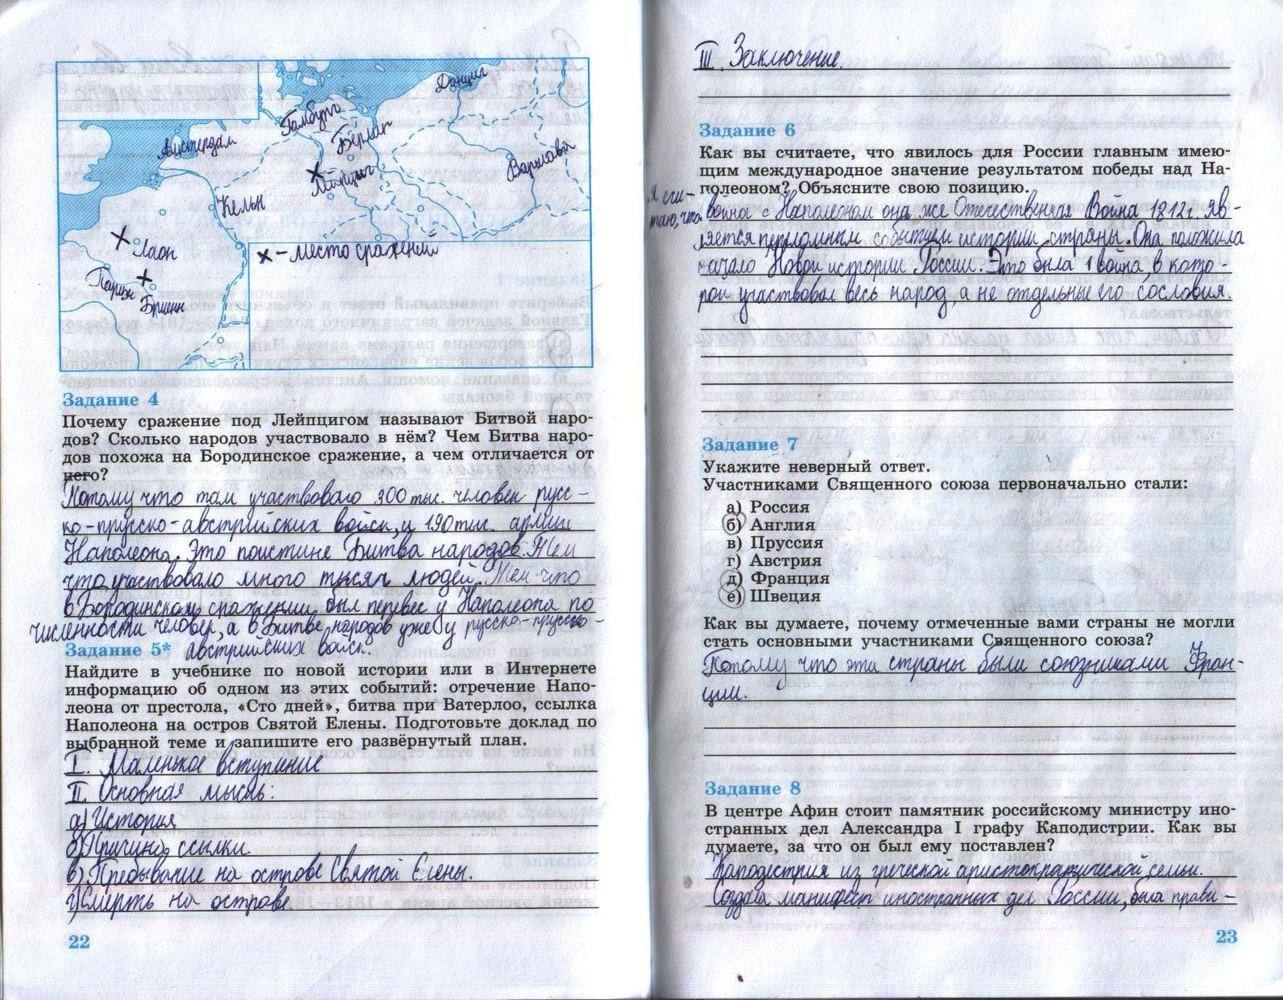 Данциг
Гамбург
Берлин
Амстердам
Варшава
Лейпциг
Кельн
Лаон
х – место сражений
Париж
Бриенн
Задание 4
Почему сражение под Лейпцигом называют Битвой наро-
дов? Сколько народов участвовало в нём? Чем Битва наро-
дов похожа на Бородинское сражение, а чем отличается от
него?
Потому что там участвовало 300 тыс. человек русс-
ко-прусско-австрийских войск, и 190 тыс. армии
Наполеона. Это поистине Битва народов. Тем
что участвовало много тысяч людей. Тем что
в Бородинском сражении был перевес у Наполеона по
численности человек, а в Битве народов уже у русско-прусско-
австрийских войск.
Задание 5*
Найдите в учебнике по новой истории или в Интернете
информацию об одном из этих событий: отречение Напо-
леона от престола, «Сто дней», битва при Ватерлоо, ссылка
Наполеона на остров Святой Елены. Подготовьте доклад по
выбранной теме и запишите его развёрнутый план.
I. Маленькое вступление
II. Основная мысль:
а) История
б) Причина ссылки
в) Пребывание на острове Святой Елены.
г) Смерть на острове
22
III. Заключение.
Задание 6
Как вы считаете, что явилось для России главным имею-
щим международное значение результатом победы над На-
полеоном? Объясните свою позицию.
Я счи-
таю, что война с Наполеоном она же Отечественная Война 1812г. яв-
ляется переломным событием истории страны. Она положила
начало Новой истории России. Это была 1 война, в кото-
рой участвовал весь народ, а не отдельные его сословия.
Задание 7
Укажите неверный ответ.
Участниками Священного союза первоначально стали:
а) Россия
б) Англия
в) Пруссия
г) Австрия
д) Франция
е) Швеция
Как вы думаете, почему отмеченные вами страны не могли
стать основными участниками Священного союза?
Потому что эти страны были союзниками Фран-
ции.
Задание 8
В центре Афин стоит памятник российскому министру ино-
странных дел Александра I графу Каподистрии. Как вы
думаете, за что он был ему поставлен?
Каподистрия из греческой аристократической семьи.
Создал манифест иностранных дел России, была прави-
23